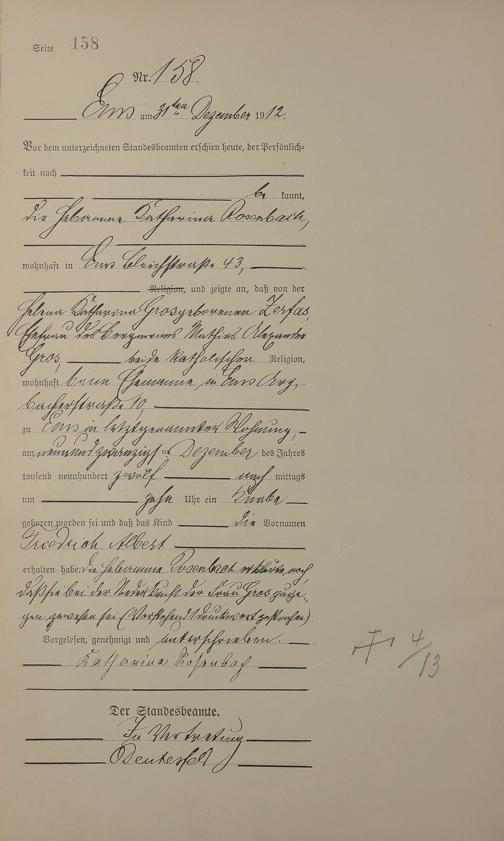 Seite 158
Nr. 158.
Ems am 31ten Dezember 1912.
Vor dem unterzeichneten Standesbeamten erschien heute, der Persönlich-
keit nach
be kannt,
die Hebamme Katharina Rosenbach,
wohnhaft in Ems Bleichstraße 43,
Religion, und zeigte an, daß von der
Helena Katharina Gros geborenen Zerfas,
Ehefrau des Bergmanns Mathias Alexander
Gros, beide katholischen Religion,
wohnhaft beim Ehemanne in Ems Arz-
bacherstraße 10,
zu Ems in letztgenannter Wohnung,
am neunundzwanzigsten Dezember des Jahres
tausend neunhundert zwölf nach mittags
um zehn Uhr ein Knabe
geboren worden sei und daß das Kind die Vornamen
Friedrich Albert
erhalten habe. Die Hebamme Rosenbach erklärte noch,
daß sie bei der Niederkunft der Frau Gros zuge-
gen gewesen sei. (Vorstehend 1 Druckwort gestrichen)
Vorgelesen, genehmigt und unterschrieben.
Katharina Rosenbach
Der Standesbeamte.
In Vertretung
4/13